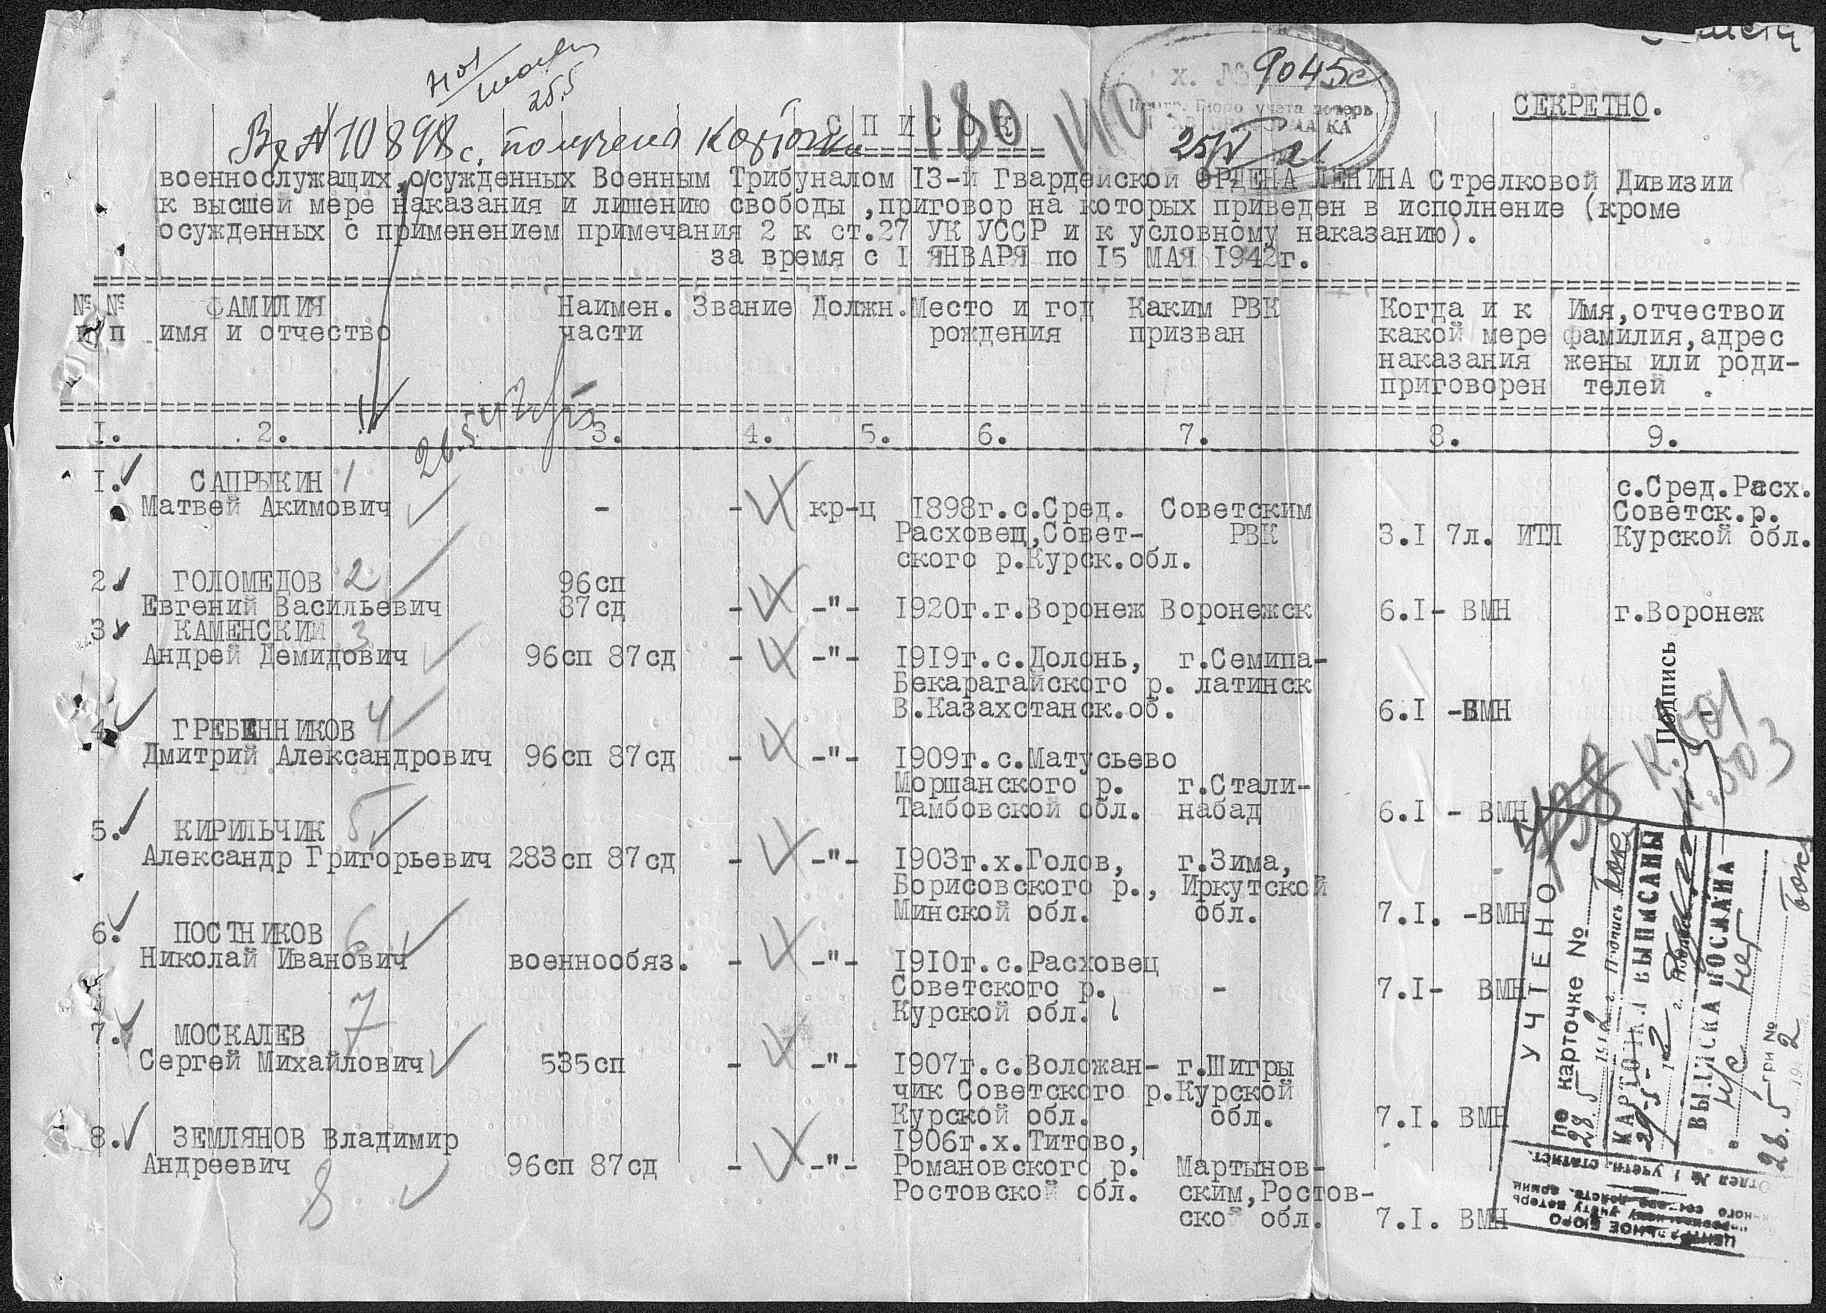 СЕКРЕТНО.
х. № 9045с
Бюро учета потерь
25/V
180
140
Вх № 10898с. получена
С П И С О К
военнослужащих, осужденных Военным Трибуналом 13-й Гвардейской ОРДЕНА ЛЕНИНА Стрелковой Дивизии
к высшей мере наказания и лишению свободы, приговор на которых приведен в исполнение (кроме
осужденных с применением примечания 2 к ст.27 УК УССР и к условному наказанию).
за время с I ЯНВАРЯ по 15 МАЯ 1942г.
№ № ФАМИЛИЯ Наимен. Звание Должн. Место и год Каким РВК Когда и к Имя,отчествои
п п имя и отчество части рождения призван какой мере фамилия,адрес
наказания жены или роди-
приговорен телей .
I. 2. 3. 4. 5. 6. 7. 8. 9.
1. САПРЫКИН 1 с.Сред.Расх.
Матвей Акимович - - кр-ц 1898г.с.Сред. Советским Советск.р.
Расховец,Совет- РВК 3.I 7л. ИТЛ Курской обл.
ского р.Курск.обл.
2. ГОЛОМЕДОВ 2 96сп
Евгений Васильевич 87сд - -"- 1920г.г.Воронеж Воронежск 6.I- ВМН г.Воронеж
3. КАМЕНСКИЙ 3
Андрей Демидович 96сп 87сд - -"- 1919г.с.Долонь, г.Семипа-
Бекарагайского р. латинск
В.Казахстанск.об. 6.I -ВМН
4. ГРЕБЕННИКОВ 4
Дмитрий Александрович 96сп 87сд - -"- 1909г.с.Матусьево
Моршанского р. г.Стали-
Тамбовской обл. набад 6.I - ВМН
5. КИРИЛЬЧИК 5
Александр Григорьевич 283сп 87сд - -"- 1903г.х.Голов, г.Зима,
Борисовского р., Иркутской
Минской обл. обл. 7.I. -ВМН
6. ПОСТНИКОВ 6
Николай Иванович военнообяз. - -"- 1910г.с.Расховец
Советского р. -
Курской обл. 7.I- ВМН
7. МОСКАЛЕВ 7
Сергей Михайлович 535сп - -"- 1907г.с.Воложан- г.Щигры
чик Советского р.Курской
Курской обл. обл. 7.I. ВМН
8. ЗЕМЛЯНОВ Владимир 1906г.х.Титово,
Андреевич 96сп 87сд - -"- Романовского р. Мартынов-
8 Ростовской обл. ским,Ростов-
ской обл. 7.I. ВМН
Подпись
К.501
К.503
УЧТЕНО
по карточке №
28.5 1942 г. Подпись
КАРТОЧКА ВЫПИСАНЫ
29-5- 2 г.
ВЫПИСКА ПОСЛАНА
в нет
при №
28.5 1942
ЦЕНТРАЛЬНОЕ БЮРО
по персональному учету потерь
личного состава действ. армии
Отдел № 1 учетн. статист.